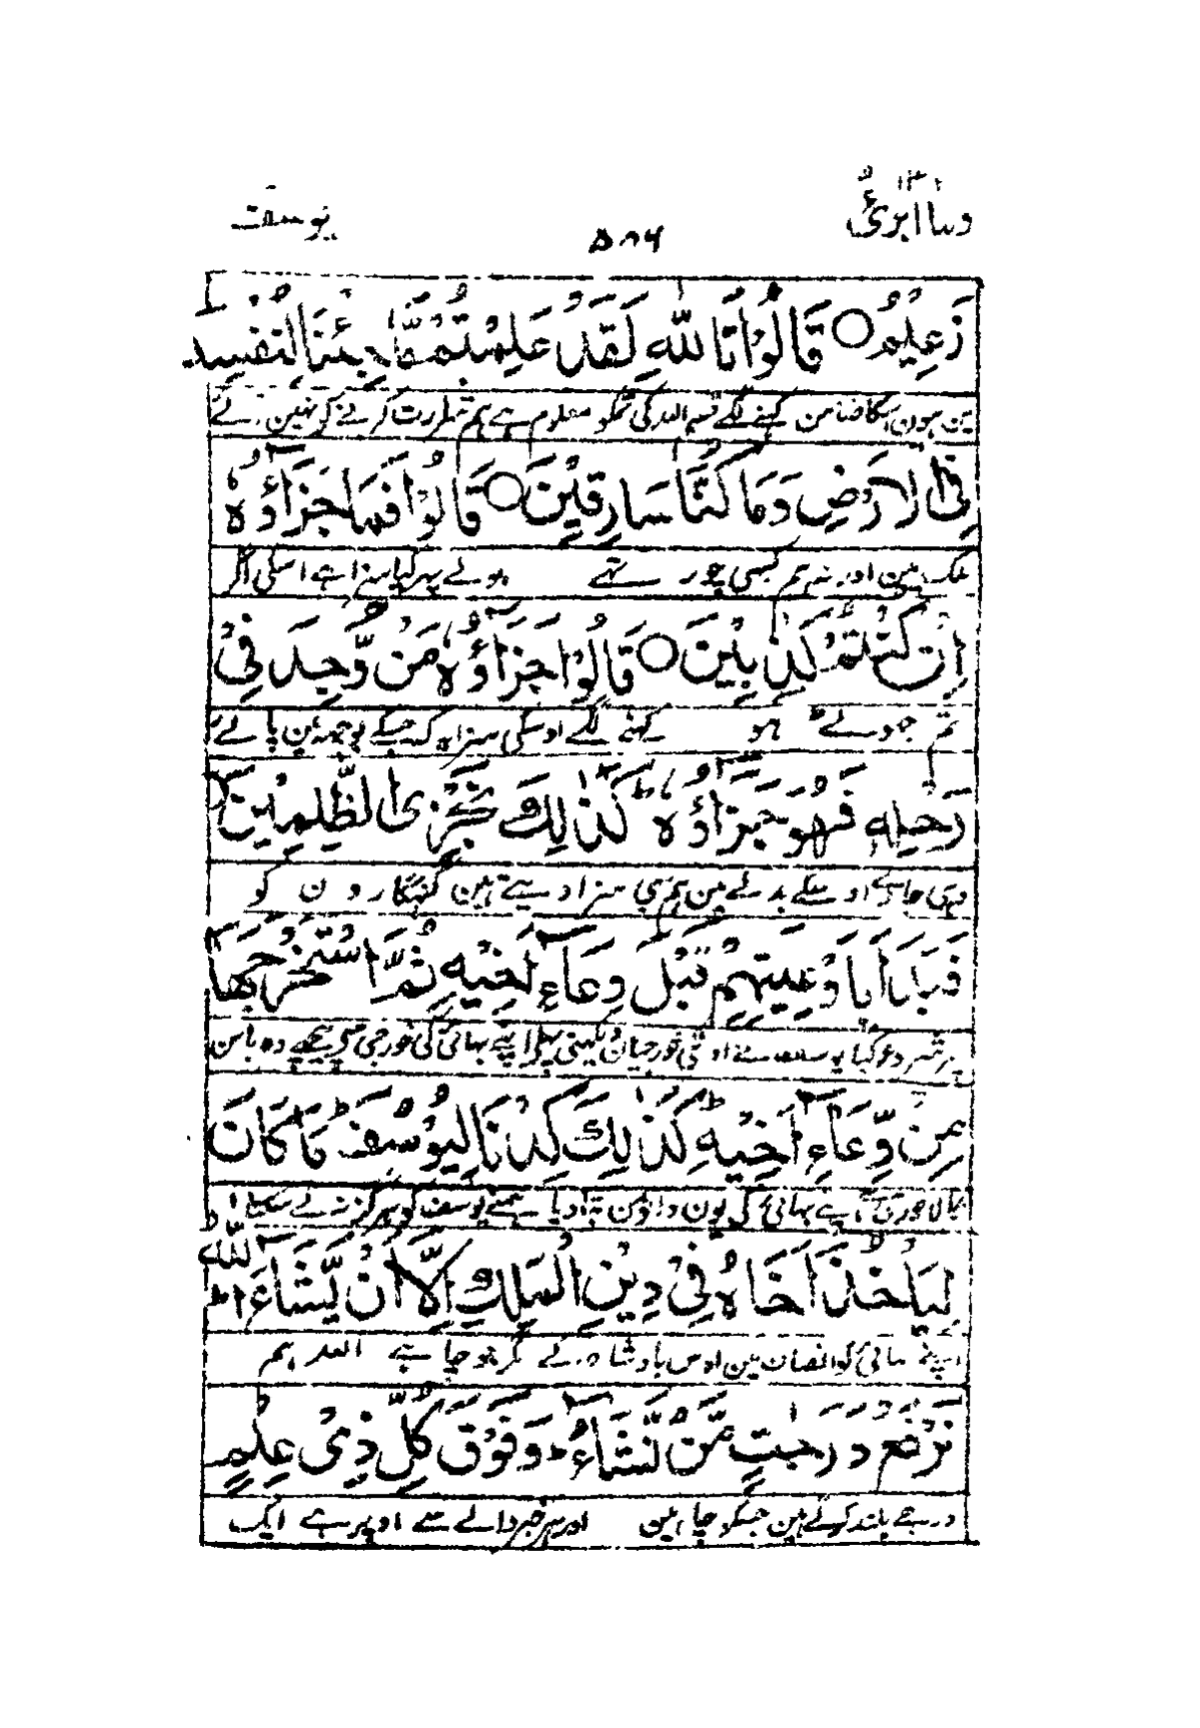 وما ابرئ ١٣ ٥٨٦ يوسف
زَعِيْمٌ ○ قَالُوْا تَاللّٰهِ لَقَدْ عَلِمْتُمْ مَّا جِئْنَا لِنُفْسِدَ
مین ہون اسکا ضامن کہنے لگے قسم اللہ کی تمکو معلوم ہے ہم شرارت کرنے کو نہین آئے
فِى الْاَرْضِ وَمَا كُنَّا سَارِقِيْنَ ○ قَالُوْا فَمَا جَزَآؤُهٗ
ملک مین اور نہ ہم کبھی چور تھے بولے پہر کیا سزا ہے اسکی اگر
اِنْ كُنْتُمْ كٰذِبِيْنَ ○ قَالُوْا جَزَآؤُهٗ مَنْ وُّجِدَ فِىْ
تم جھوٹے ہو کہنے لگے اوسکی سزا یہ کہ جسکے بوجھ مین پائے
رَحْلِهٖ فَهُوَ جَزَآؤُهٗ ط كَذٰلِكَ نَجْزِى الظّٰلِمِيْنَ
وہی جاوے اوسکے بدلے مین ہم یہی سزا دیتے ہین گنہگارون کو
فَبَدَاَ بِاَوْعِيَتِهِمْ قَبْلَ وِعَآءِ اَخِيْهِ ثُمَّ اسْتَخْرَجَهَا
پھر شروع کیا یوسف نے اونکی خورجیان دیکھنی پہلے اپنے بھائی کی خورجی سے پیچھے وہ باسن
مِنْ وِّعَآءِ اَخِيْهِ ط كَذٰلِكَ كِدْنَا لِيُوْسُفَ ط مَا كَانَ
نکالا خورجی سے اپنے بھائی کی یون داؤن بتا دیا ہمنے یوسف کو ہرگز نہ لے سکتا
لِيَاْخُذَ اَخَاهُ فِىْ دِيْنِ الْمَلِكِ اِلَّآ اَنْ يَّشَآءَ اللّٰهُ ط
اپنے بھائی کو انصاف مین اوس بادشاہ کے مگر جو چاہے اللہ ہم
نَرْفَعُ دَرَجٰتٍ مَّنْ نَّشَآءُ ط وَفَوْقَ كُلِّ ذِىْ عِلْمٍ
درجے بلند کرتے ہین جسکو چاہین اور ہر خبر والے سے اوپر ہے ایک